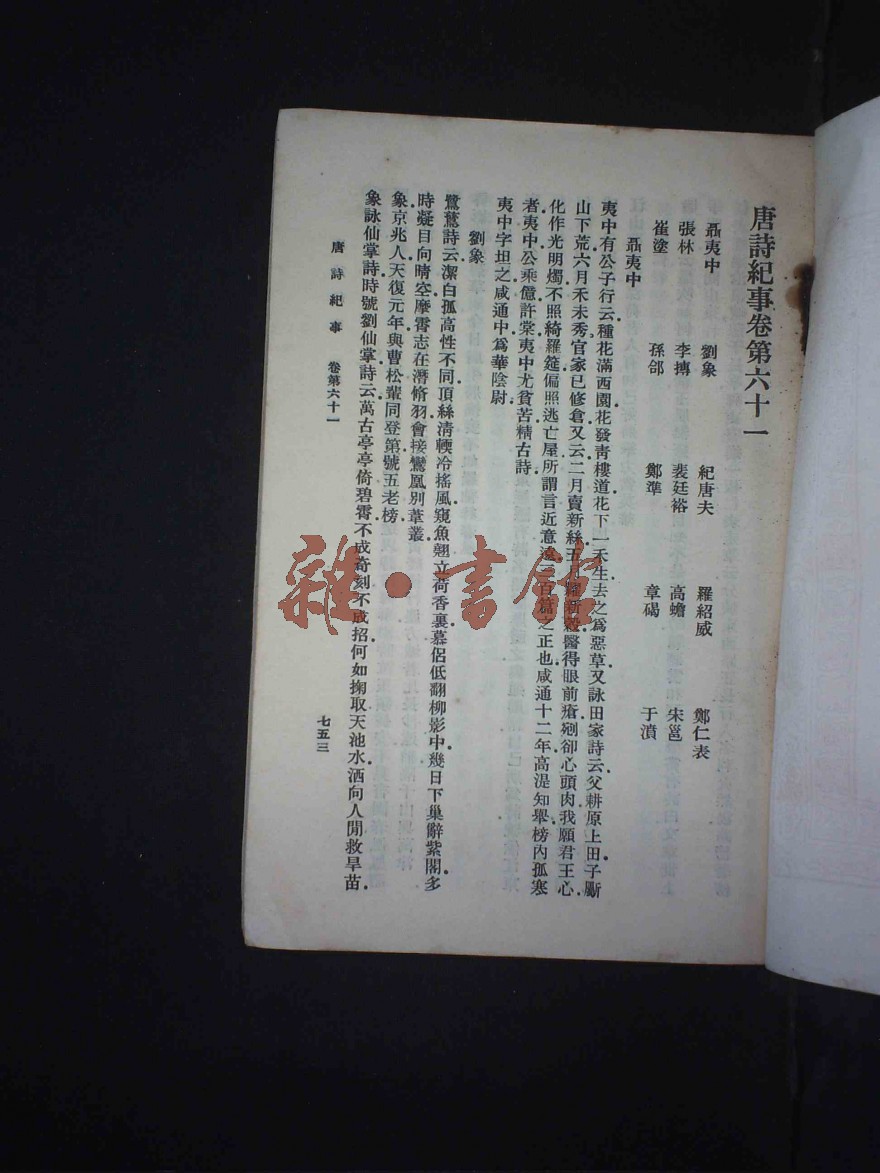 唐詩紀事卷第六十一
聶夷中 劉象 紀唐夫 羅紹威 鄭仁表
張林 李摶 裴廷裕 高蟾 宋邕
崔塗 孫郃 鄭準 章碣 于濆
聶夷中
夷中有公子行云種花滿西園花發靑樓道花下一禾生去之爲惡草又詠田家詩云父耕原上田子劚
山下荒六月禾未秀官家已修倉又云二月賣新絲五月糶新穀醫得眼前瘡剜卻心頭肉我願君王心
化作光明燭不照綺羅筵偏照逃亡屋所謂言近意遠三百篇之正也咸通十二年高湜知舉榜內孤寒
者夷中公乘億許棠夷中尤貧苦精古詩
夷中字坦之咸通中爲華陰尉
劉象
鷺鷥詩云潔白孤高性不同頂絲清輭冷搖風窺魚翹立荷香裏慕侶低翻柳影中幾日下巢辭紫閣多
時凝目向晴空摩霄志在潛脩羽會接鸞凰別葦叢
象京兆人天復元年與曹松輩同登第號五老榜
象詠仙掌詩時號劉仙掌詩云萬古亭亭倚碧霄不成奇刻不成招何如掬取天池水洒向人閒救旱苗
唐詩紀事 卷第六十一
七五三
雜·書館